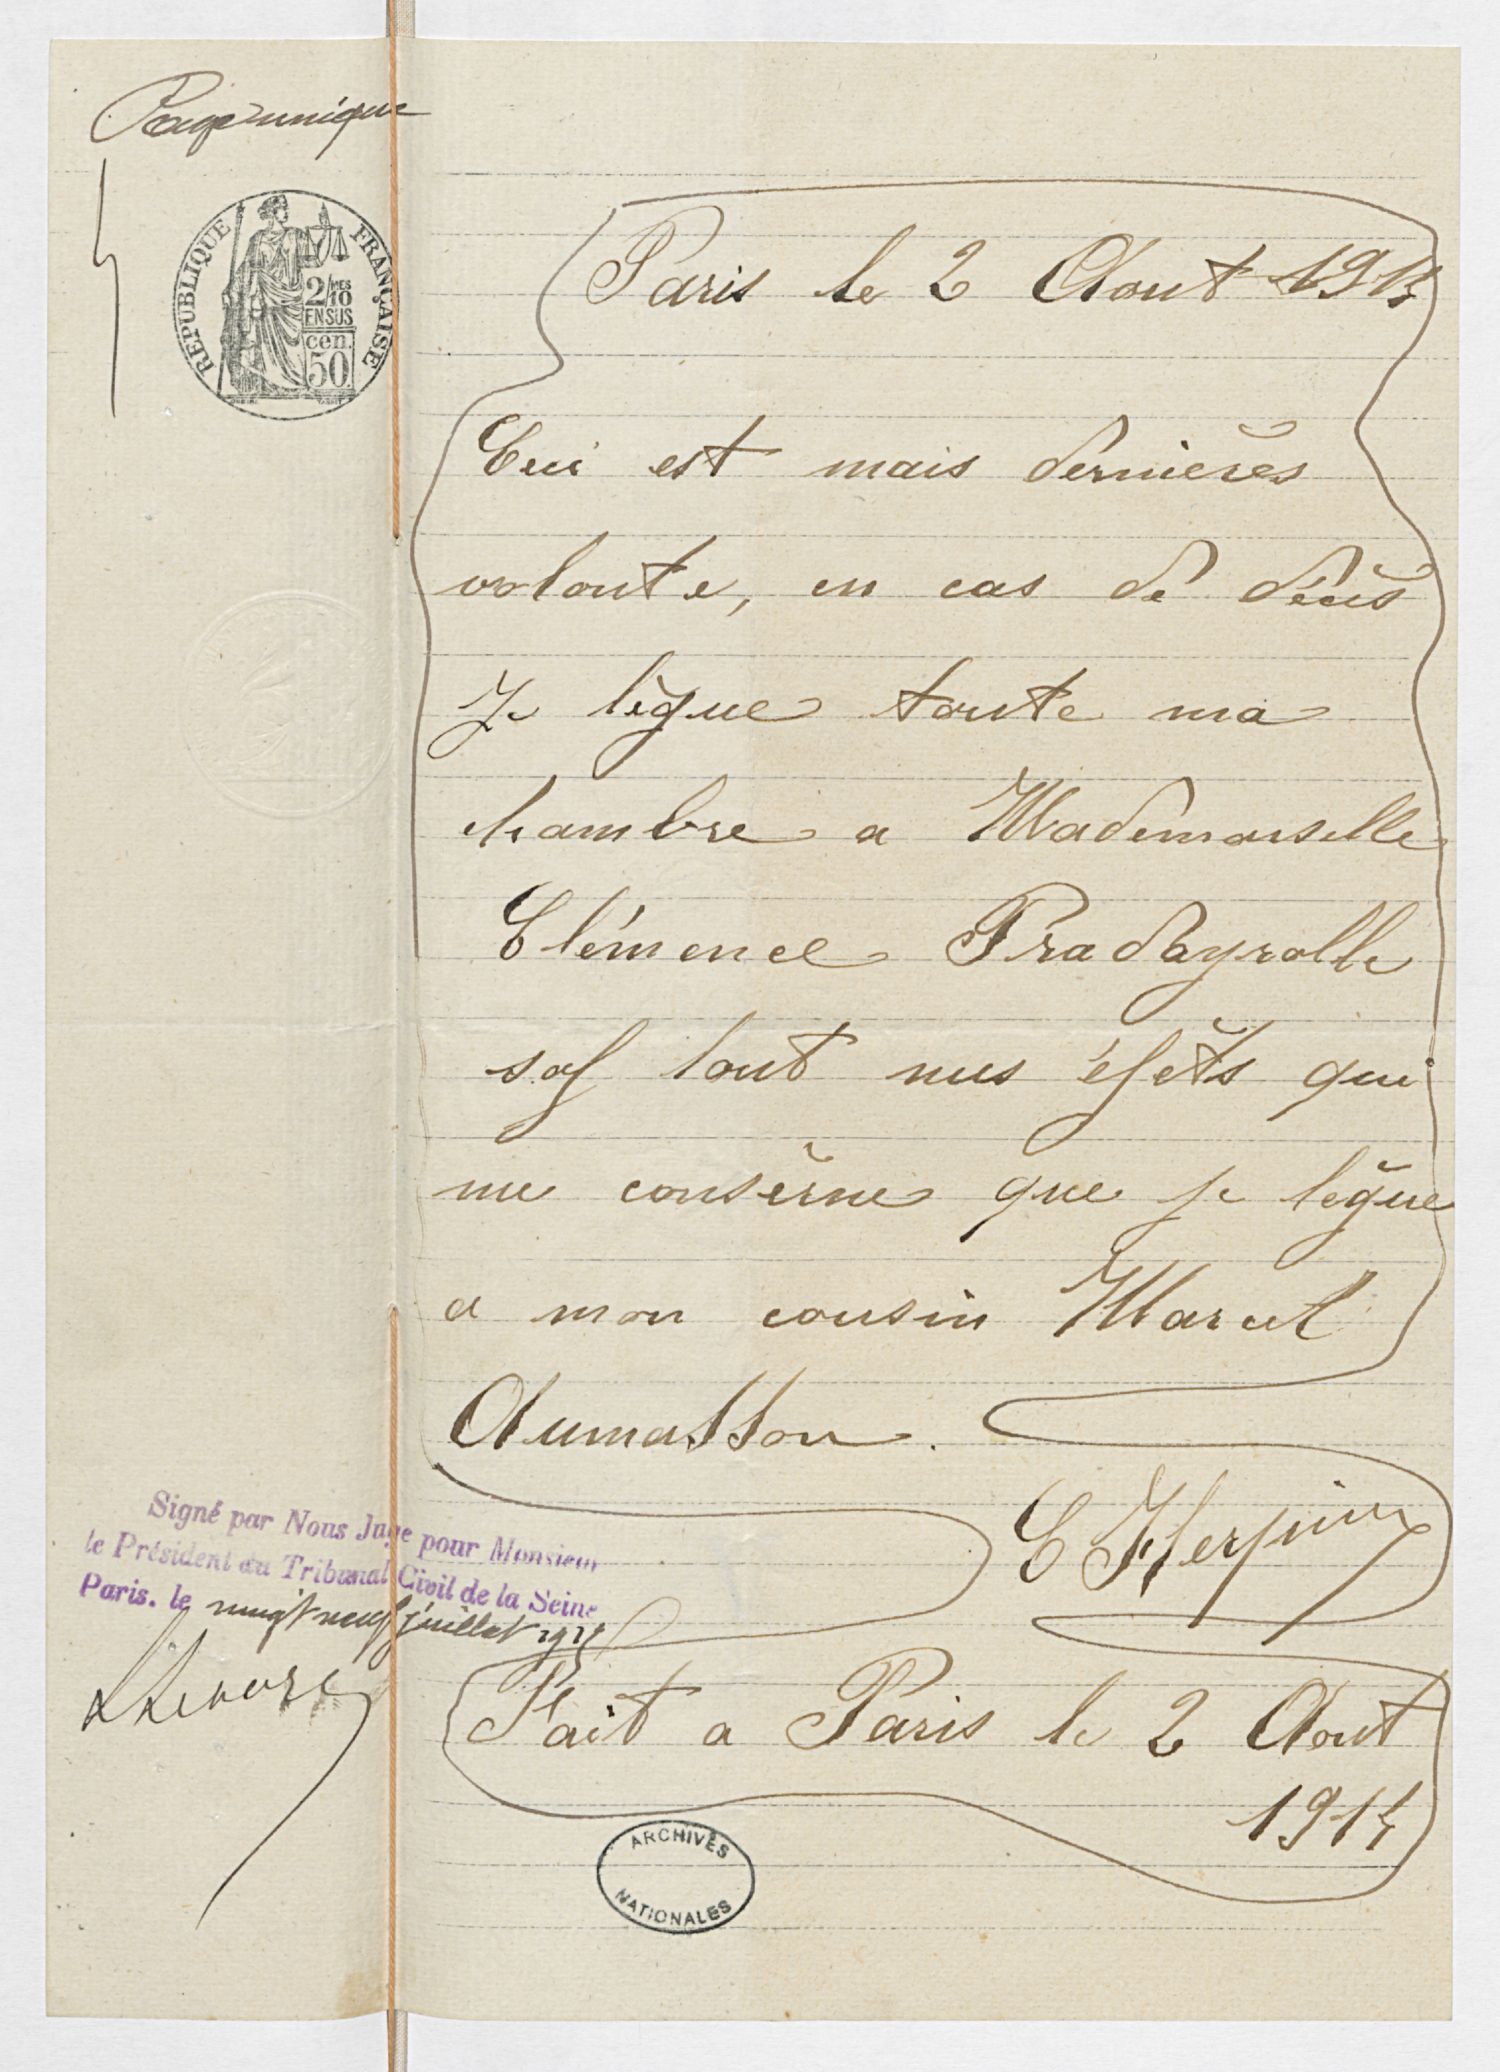 Page unique
RÉPUBLIQUE FRANÇAISE
2/10 MES
EN SUS
cen.
50
Paris le 2 Aout 1914
Ceci est mais dernières
volonte, en cas de décès
Je lègue toute ma
chambre a Mademoiselle
Clémence Pradayrolle
sof tout mes éfèts qui
me consèrne que je lègue
a mon cousin Marcel
Aumasson.
C Herpin
Signé par Nous Juge pour Monsieur
le Président du Tribunal Civil de la Seine
Paris, le vingt neuf juillet
Fait a Paris le 2 Aout
1914
ARCHIVES
NATIONALES